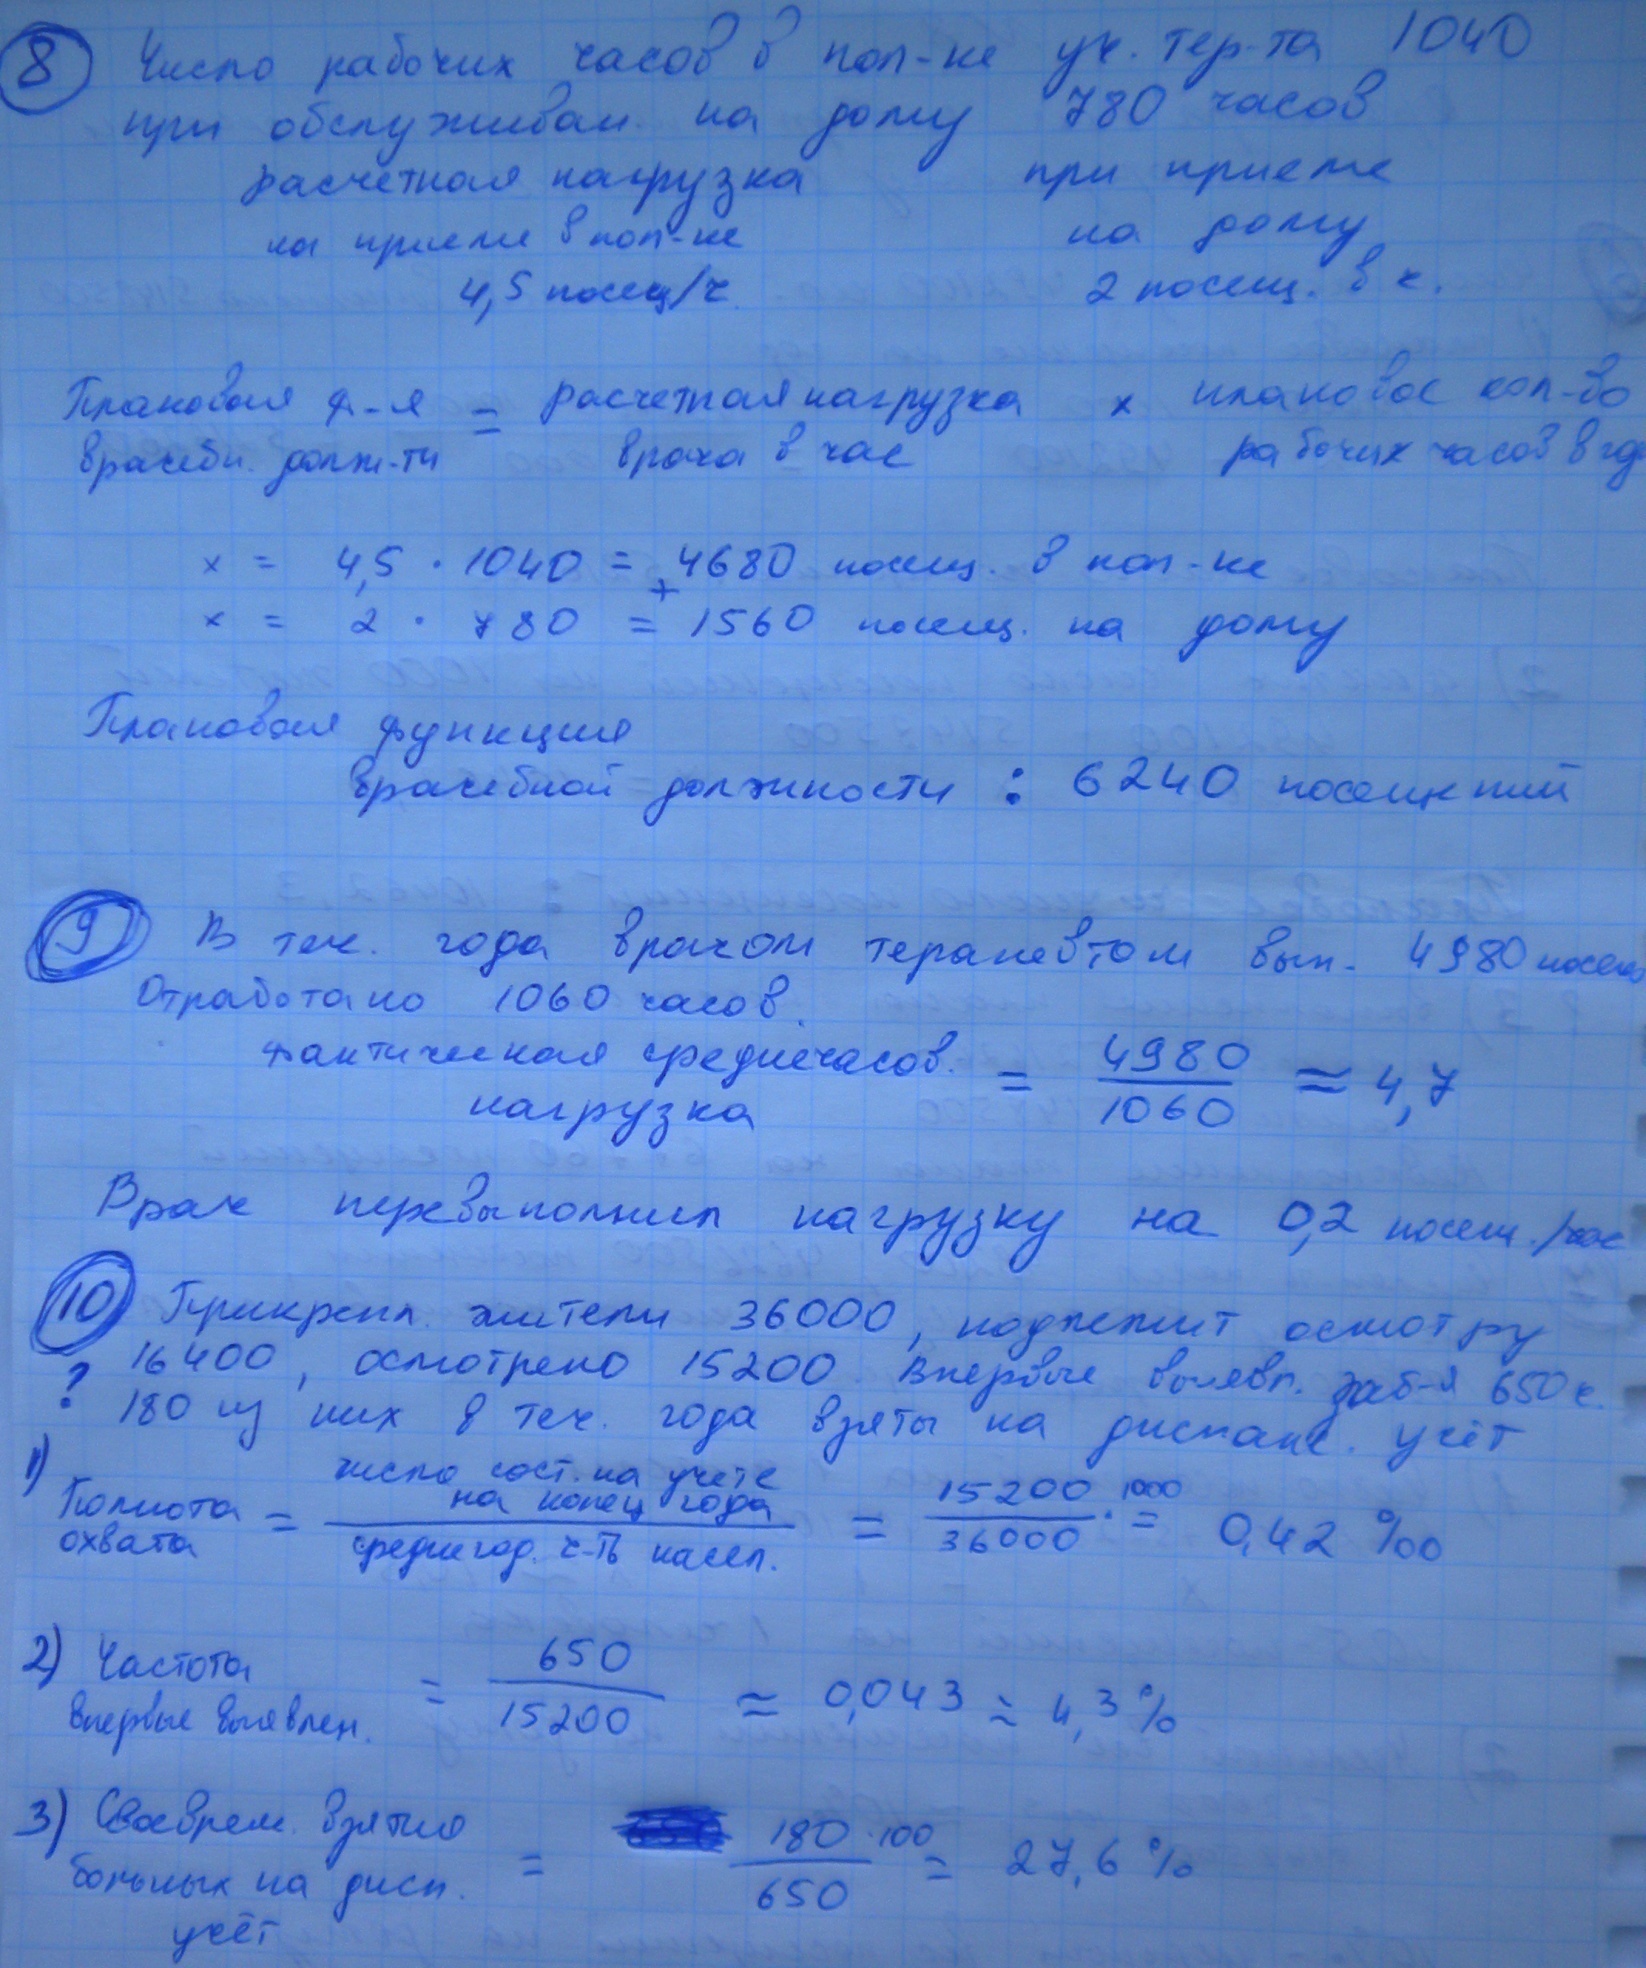 8 Число рабочих часов в пол-ке уч. тер-та 1040
при обслуживан. на дому 780 часов
расчетная нагрузка при приеме
на приеме в пол-ке на дому
4,5 посещ/ч 2 посещ. в ч.
Плановая ф-я = расчетная нагрузка х плановое кол-во
врачебн. долж-ти врача в час рабочих часов в год
х = 4,5 · 1040 = 4680 посещ. в пол-ке
+
х = 2 · 780 = 1560 посещ. на дому
Плановая функция
врачебной должности : 6240 посещений
9 В теч. года врачом терапевтом вып. 4980 посещ
Отработано 1060 часов.
Фактическая среднечасов. нагрузка = 4980 / 1060 ≈ 4,7
Врач перевыполнил нагрузку на 0,2 посещ./час
10 Прикрепл. жители 36000, подлежит осмотру
? 16400, осмотрено 15200. Впервые выявл. заб-я 650 ч.
180 из них в теч. года взяты на диспанс. учёт
1) Полнота охвата = число сост. на учете на конец года / среднегод. ч-ть насел. = 15200 / 36000 · 1000 = 0,42 ‰
2) Частота впервые выявлен. = 650 / 15200 ≈ 0,043 ≈ 4,3 %
3) Своеврем. взятие больных на дисп. учёт = 180 · 100 / 650 = 27,6 %